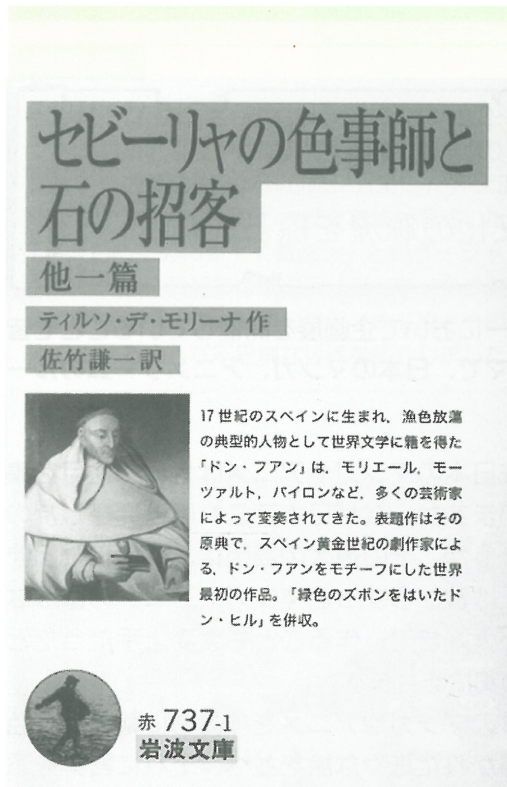 セビーリャの色事師と
石の招客
他一篇
ティルソ・デ・モリーナ作
佐竹謙一訳
17世紀のスペインに生まれ，漁色放蕩
の典型的人物として世界文学に籍を得た
「ドン・フアン」は，モリエール，モー
ツァルト，バイロンなど，多くの芸術家
によって変奏されてきた。表題作はその
原典で，スペイン黄金世紀の劇作家によ
る，ドン・フアンをモチーフにした世界
最初の作品。「緑色のズボンをはいたド
ン・ヒル」を併収。
赤 737-1
岩波文庫